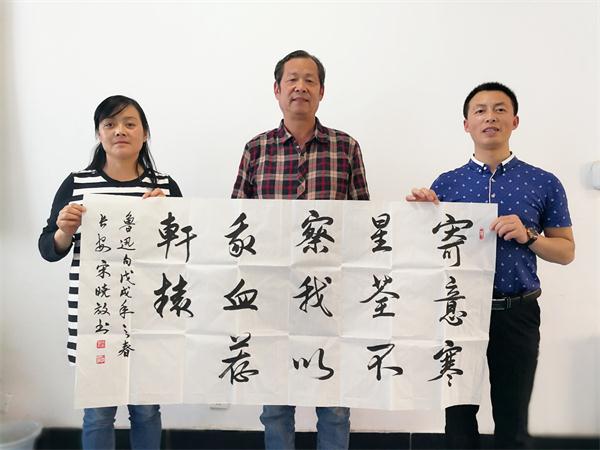 寄意寒
星荃不
察我以
我血荐
軒轅
鲁迅句戊戌年之春
长安宋晓放书